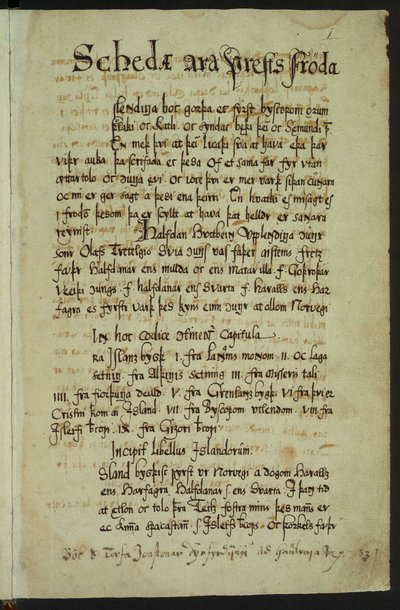 1
Schedæ ara prests fröda
slendinga bóc gørþa ec fyrst byscopom órom
þorláki oc Katli. oc syndac beþi þeim oc Sæmundi p.
En meþ þvi at þeim licaþi sva at hava eþa þar
viþr auka þa scrifaþa ec þesa of et sama far fyr útan
áttartolo oc cununga evi. oc ióc þvi er mer varþ siþan cunnara
oc nu er gerr sagt a þesi en a þeirri. En hvatki es misagt es
i froþom þesom þa er scyllt at hava þat helldr er sannara
reynist. Halfdan hvitbein Upplendinga cunungr
sonr Olafs Tretelgio Svia cunungs vas faþer aisteins frets
faþor Halfdanar ens millda oc ens matar illa. f. Goþroþar
Veiþi cunungs. f. halfdanar ens svarta. f. haralls ens har
fagra es fyrstr varþ þess kyns einn cunungr at ollom Norvegi
In hoc codice continentur Capitula
Fra Islanz bygþ. I. fra Lanáms monom. II. oc laga
setning. fra Alþingis setning. III. fra Miseris tali
IIII. fra fiorþunga deild. V. fra Grenlanz bygþ. VI. fra þvi er
Cristni kom a Island. VII. fra Byscopom utlendom. VIII. fra
Isleifi byscopi. IX. fra Gizori byscopi
Incipit libellus Islandorum.
Island bygþisc fyrst ur Norvegi a dogom Haralls
ens Harfagra Halfdanar s ens svarta. I þan tid
at etlon oc tolo þra Teitz fostra mins þes manns er
ec kunna spacastan. s Isleifs byscops. oc þorkels faþor
Bók S. Torfa Jonssonar